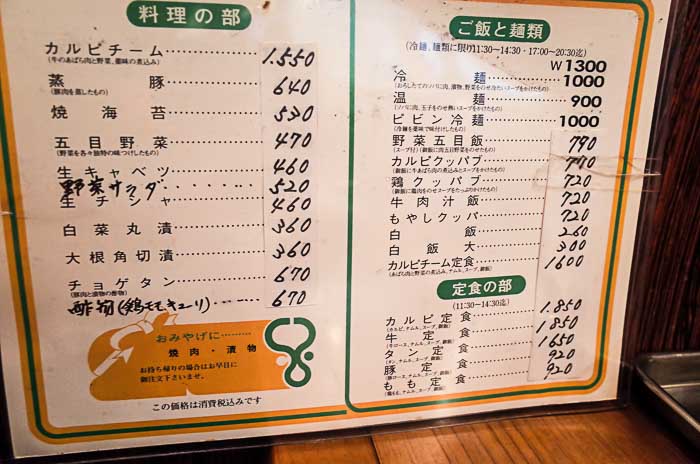 料理の部
カルビチーム 1.550
(牛のあばら肉と野菜、薬味の煮込み)
蒸豚 640
(豚肉を蒸したもの)
焼海苔 530
五目野菜 470
(野菜を各々独特の味つけしたもの)
生キャベツ 460
野菜サラダ 520
生チシャ 460
白菜丸漬 360
大根角切漬 360
チョゲタン 670
酢物(鶏モモ、キューリ) 670
おみやげに………
焼肉・漬物
お持ち帰りの場合はお早目に
御注文下さいませ。
この価格は消費税込みです
ご飯と麺類
(冷麺、麺類に限り11:30~14:30・17:00~20:30迄)
W 1300
冷麺 1000
温麺 900
(ソバに肉、玉子をのせ熱いスープをかけたもの)
ビビン冷麺 1000
(冷麺を薬味で味付けしたもの)
野菜五目飯 790
(スープ付)(御飯に肉五目野菜をのせたもの)
カルビクッパプ
(御飯に牛あばら肉の煮込みとスープをかけたもの)
鶏クッパプ 720
(御飯に鶏肉をのせスープをたっぷりかけたもの)
牛肉汁飯 720
もやしクッパ 720
白飯 260
白飯大 300
カルビチーム定食 1600
(あばら肉と野菜の煮込み、ナムル、スープ、御飯)
定食の部
(11:30~14:30迄)
カルビ定食 1.850
(カルビ、ナムル、スープ、御飯)
牛定食 1850
(牛ロース、ナムル、スープ、御飯)
タン定食 1650
(タン、ナムル、スープ、御飯)
豚定食 920
(豚ロース、ナムル、スープ、御飯)
もも定食 920
(鶏もも、ナムル、スープ、御飯)